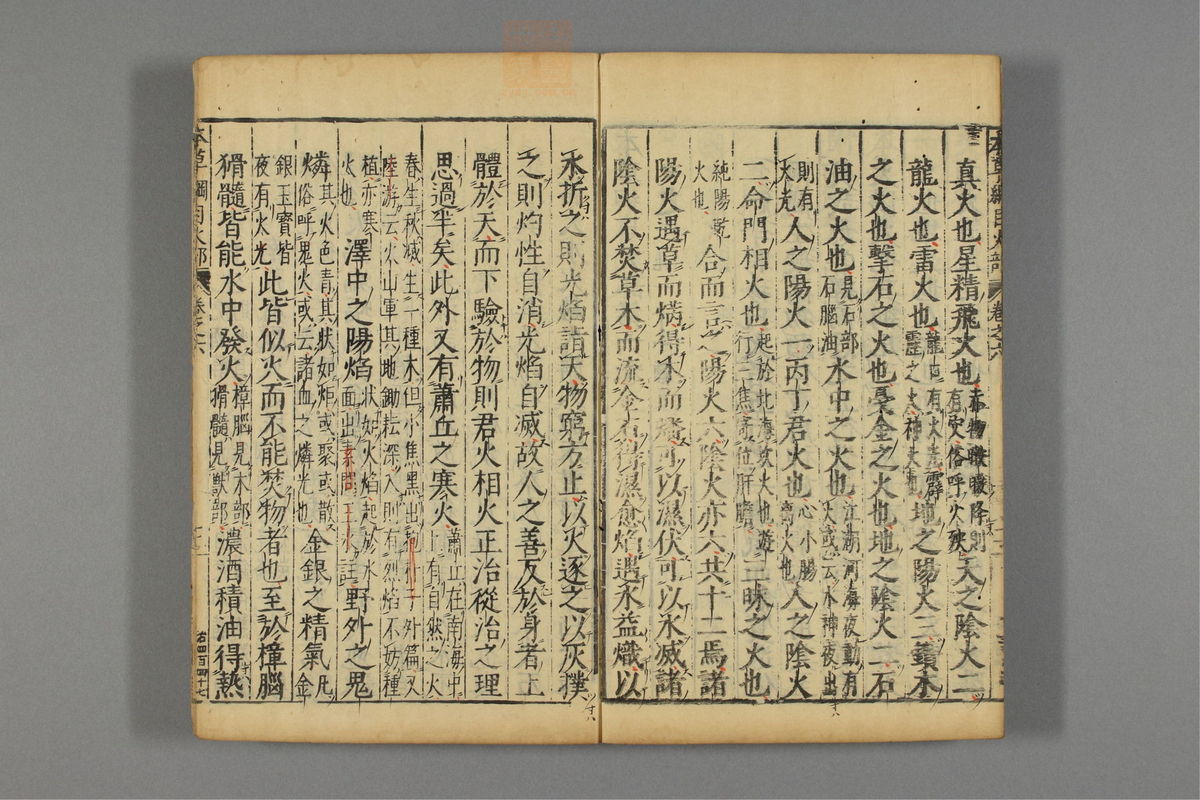 本草綱目火部 卷之六
真火也星精飛火也赤物暾暾降則有灾俗呼火殃天之陰火二
龍火也雷火也龍口有火光霹靂之火神火也地之陽火三鑽木
之火也擊石之火也戛金之火也地之陰火二石
油之火也見石部石腦油水中之火也江湖河海夜動有火或云水神夜出
則有火光人之陽火一丙丁君火也心小腸離火也人之陰火
二命門相火也起於北海坎火也遊行三焦寄位肝膽三昧之火也
純陽乾火也合而言之陽火六陰火亦六共十二焉諸
陽火遇草而焫得木而燔可以濕伏可以水滅諸
陰火不焚草木而流金石得濕愈焰遇水益熾以
水折之則光焰詣天物窮方止以火逐之以灰撲
之則灼性自消光焰自滅故人之善反於身者上
體於天而下驗於物則君火相火正治從治之理
思過半矣此外又有蕭丘之寒火蕭丘在南海中上有自然之火
春生秋滅生一種木但小焦黑出抱朴子外篇又陸游云火山軍其地鋤耘深入則有烈焰不妨種
植亦寒火也澤中之陽焰狀如火焰起於水面出素問王冰註野外之鬼
燐其火色青其狀如炬或聚或散俗呼鬼火或云諸血之燐光也金銀之精氣凡金
銀玉寶皆夜有火光此皆似火而不能焚物者也至於樟腦
猾髓皆能水中發火樟腦見木部猾髓見獸部濃酒積油得熱
本草綱目火部 卷之六
右四百四十七